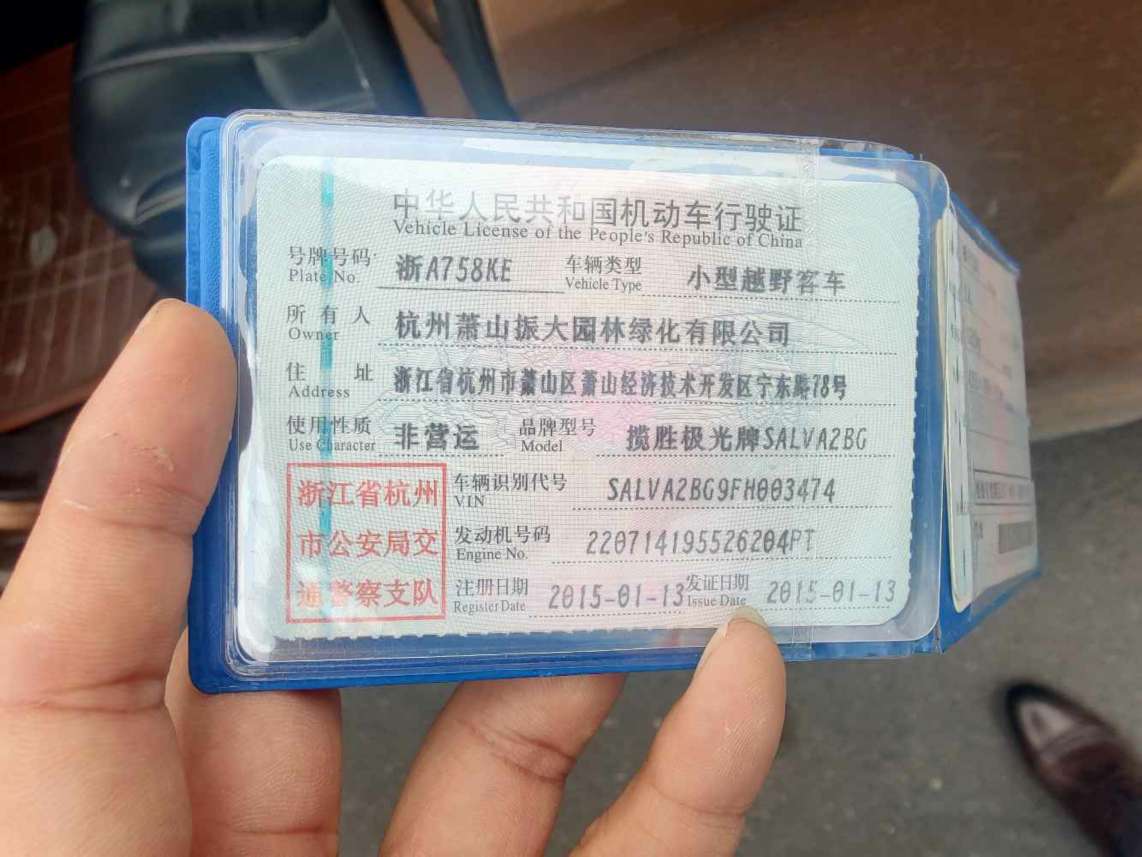 中华人民共和国机动车行驶证
Vehicle License of the People's Republic of China
号牌号码 浙A758KE 车辆类型 小型越野客车
Plate No. Vehicle Type
所有人 杭州萧山振大园林绿化有限公司
Owner
住址 浙江省杭州市萧山区萧山经济技术开发区宁东路78号
Address
使用性质 非营运 品牌型号 揽胜极光牌SALVA2BG
Use Character Model
浙江省杭州 车辆识别代号 SALVA2BG9FH003474
VIN
市公安局交 发动机号码 220714195526204PT
Engine No.
通警察支队 注册日期 2015-01-13 发证日期 2015-01-13
Register Date Issue Date